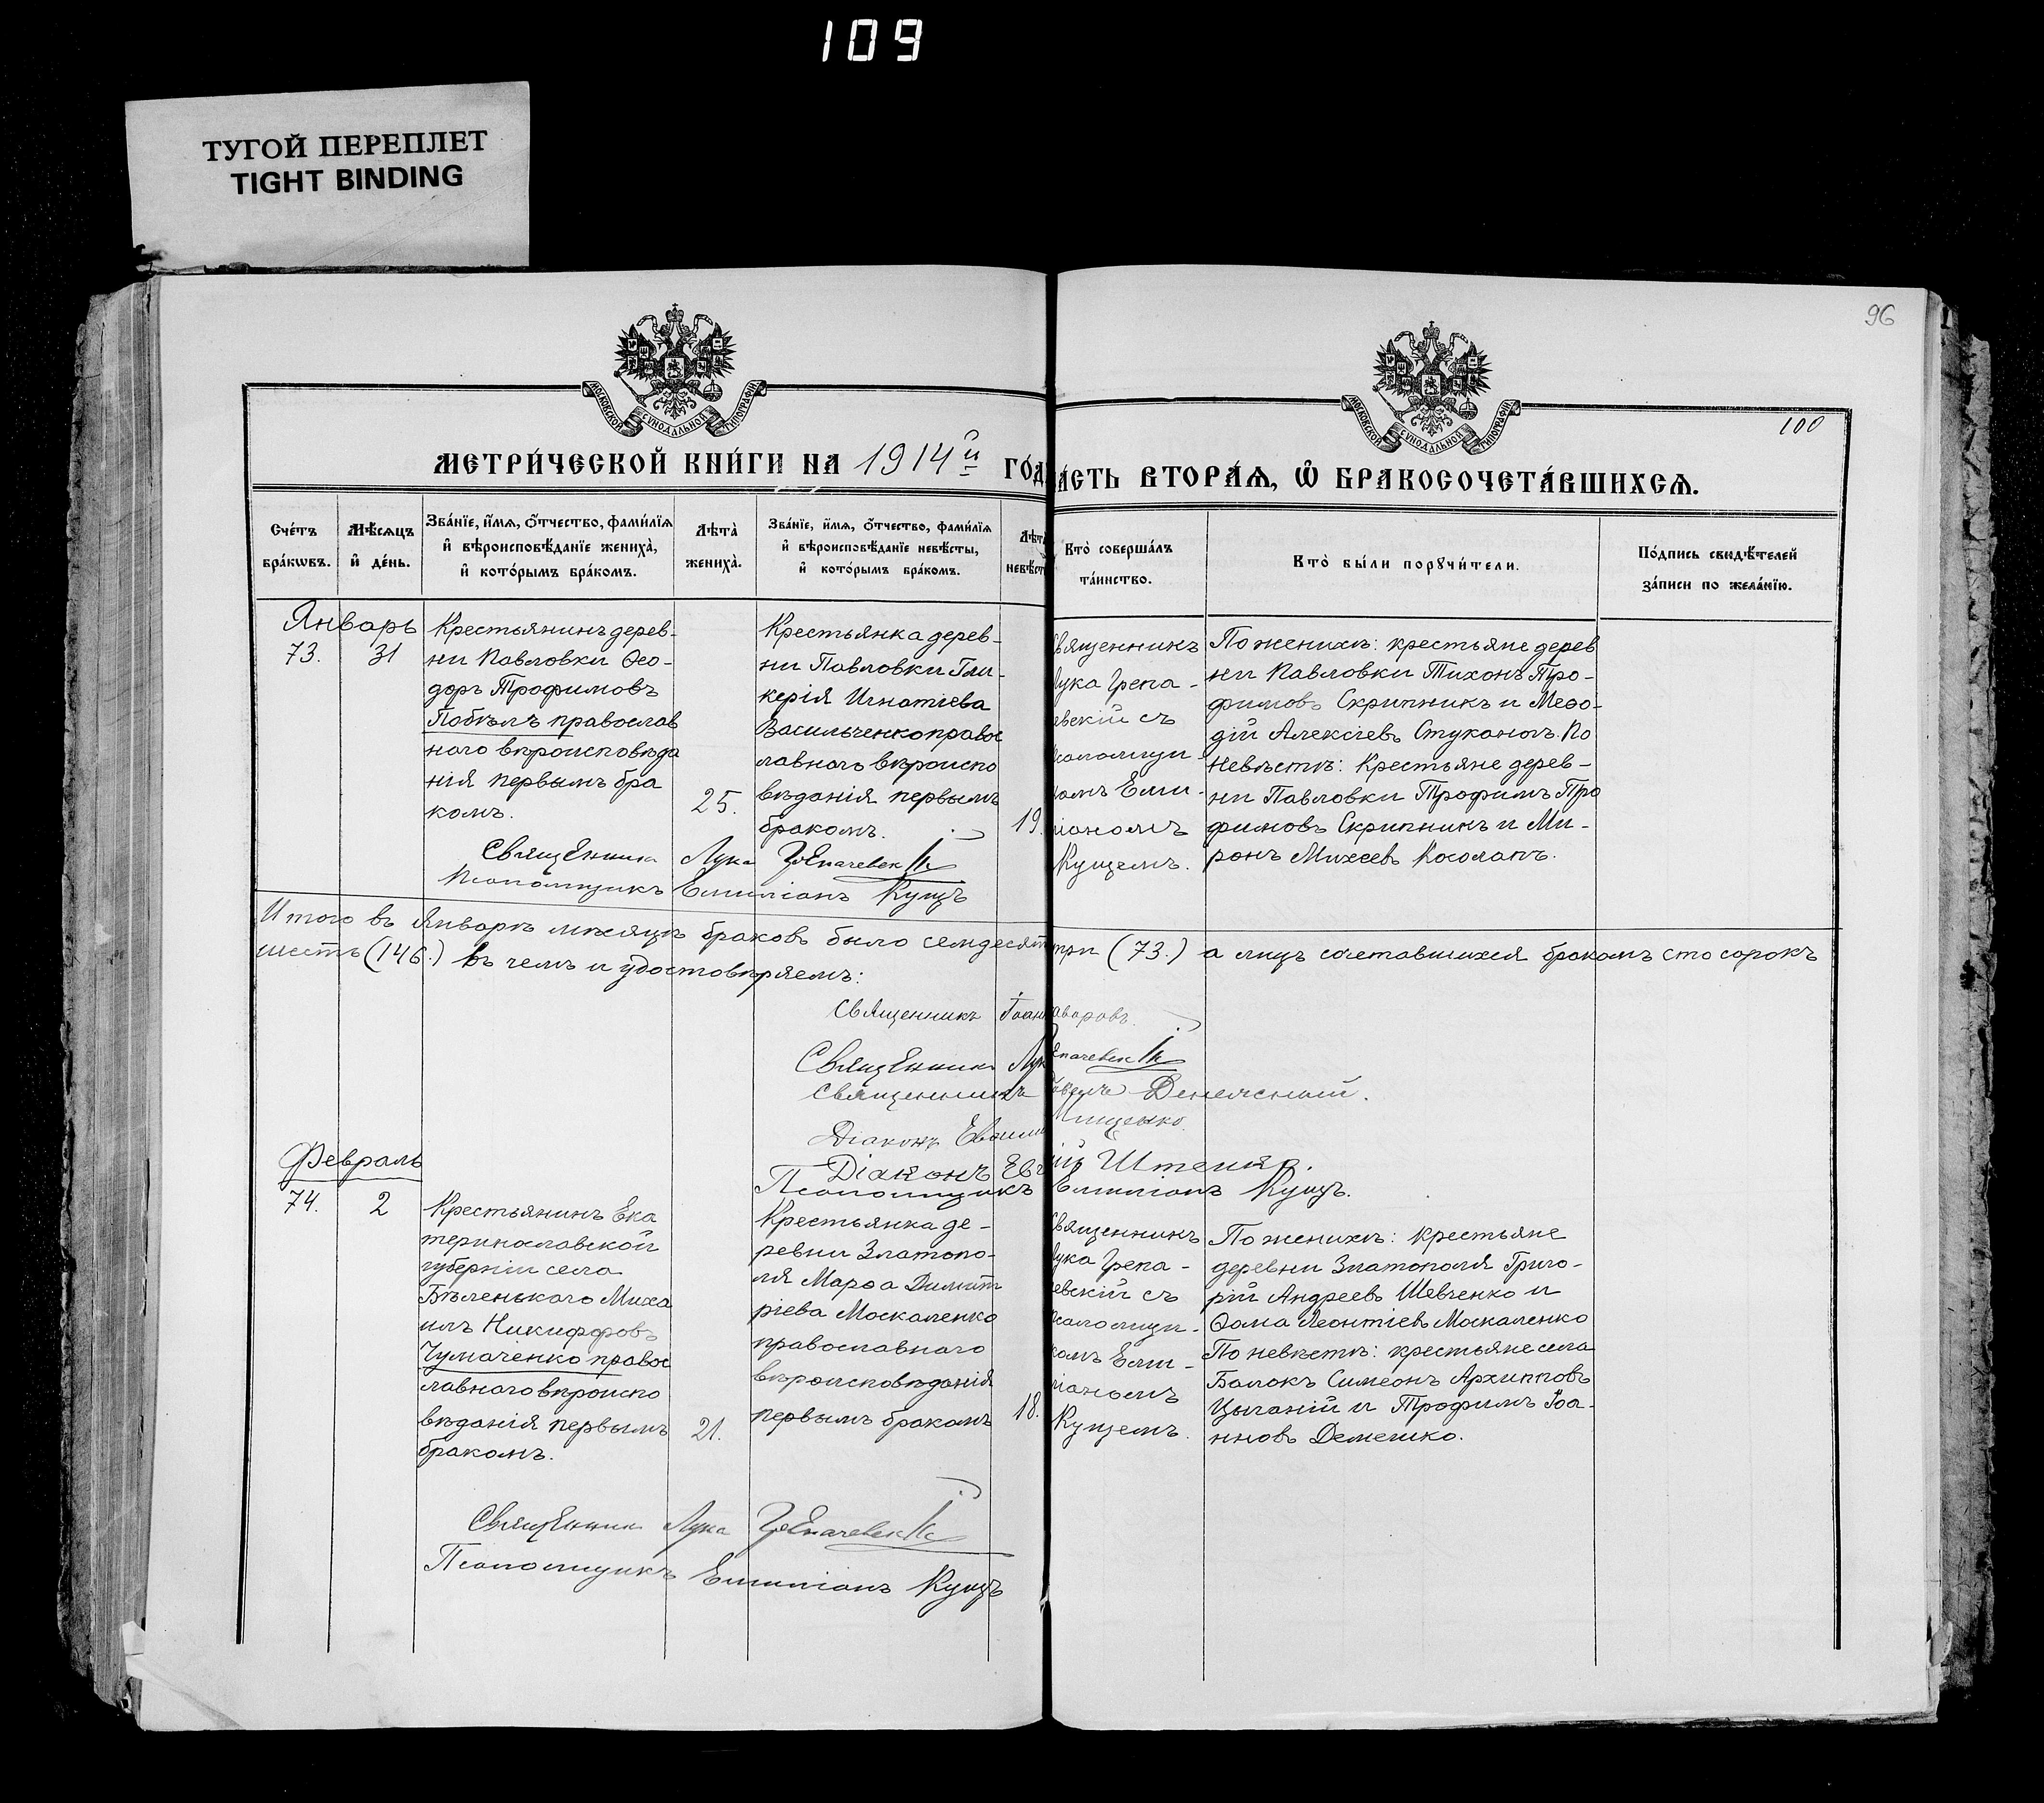 109
ТУГОЙ ПЕРЕПЛЕТ
TIGHT BINDING
96
100
МОСКОВСКОЙ СУНОДАЛЬНОЙ ТИПОГРАФІИ
МОСКОВСКОЙ СУНОДАЛЬНОЙ ТИПОГРАФІИ
МЕТРИ́ЧЕСКОЙ КНИ́ГИ НА 1914й ГО́Д
А́СТЬ ВТОРА́Ѧ, Ѽ БРАКОСОЧЕТА́ВШИХСѦ.
Сче́тъ
бра́кѡвъ.
Мѣ́сѧцъ
и҆ де́нь.
Зва́нїе, и҆́мѧ, ѻ҆́тчество, фами́лїѧ
и҆ вѣроисповѣ́данїе жениха̀,
и҆ кото́рымъ бра́комъ.
Лѣта̀
жениха̀.
Зва́нїе, и҆́мѧ, ѻ҆́тчество, фами́лїѧ
и҆ вѣроисповѣ́данїе невѣ́сты,
и҆ кото́рымъ бра́комъ.
Лѣт
невѣ́ст
Кто̀ соверша́лъ
та́инство.
Кто̀ бы́ли порꙋчи́тели.
По́дпись свидѣ́телей
за́писи по жела́нїю.
Январь
73.
31
Крестьянинъ дерев-
ни Павловки Ѳео-
доръ Трофимовъ
Побѣлъ православ
наго вѣроисповѣда
нія первымъ бра
комъ.
25.
Крестьянка дерев-
ни Павловки Гли-
керія Игнатіева
Васильченко правос
лавнаго вѣроиспо
вѣданія первымъ
бракомъ.
19.
Священникъ
Лука Грепа-
евскій съ
саломщи-
омъ Еми-
ліаномъ
Кущемъ.
По женихѣ: крестьяне дерев
ни Павловки Тихонъ Тро-
фимовъ Скрипникъ и Меѳо-
дій Алексіевъ Стуканъ. По
невѣстѣ: крестьяне дерев-
ни Павловки Трофимъ Тро
фимовъ Скрипникъ и Ми-
ронъ Михеевъ Косолапъ.
Священникъ Лука
Псаломщикъ Емиліанъ Кущъ
Итого въ Январѣ мѣсяцѣ браковъ было семдесят три (73.) а лицъ сочетавшихся бракомъ сто сорокъ
шесть (146.) въ чемъ и удостовѣряемъ:
Священникъ Іоан
Священникъ Лук
Священникъ
Діаконъ Мищенко.
Діаконъ Евг
Псаломщикъ Емиліанъ Кущъ.
Февраль
74.
2
Крестьянинъ Ека
теринославской
губерніи села
Бѣленькаго Миха
илъ Никифоровъ
Чумаченко правос
лавнаго вѣроиспо
вѣданія первымъ
бракомъ.
21.
Крестьянка де-
ревни Златопо-
ля Марѳа Димит
ріева Москаленко
православнаго
вѣроисповѣданія
первымъ бракомъ
18.
Священникъ
Лука Грепа-
евскій съ
саломщи-
комъ Еми-
ліаномъ
Кущемъ.
По женихѣ: крестьяне
деревни Златополя Григо-
рій Андреевъ Шевченко и
Ѳома Леонтіевъ Москаленко
По невѣстѣ: крестьяне села
Балокъ Симеонъ Архиповъ
Цыганій и Трофимъ Іоа-
нновъ Демешко.
Священникъ Лука
Псаломщикъ Емиліанъ Кущъ